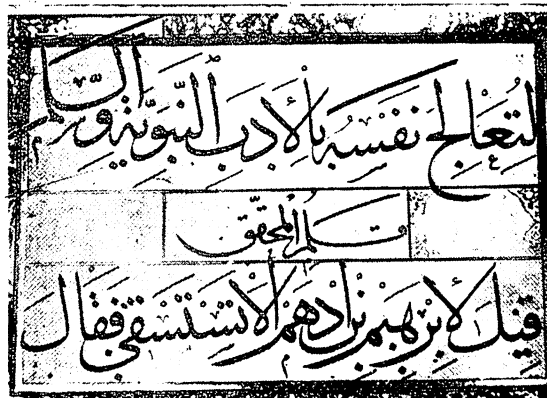 لتُعَالج نَفْسُه بالأدَبِ النَّبَوِيَّة
قلم المحقّق
قيل لإبرهيم بن أدهم ألا تستسقي فقال